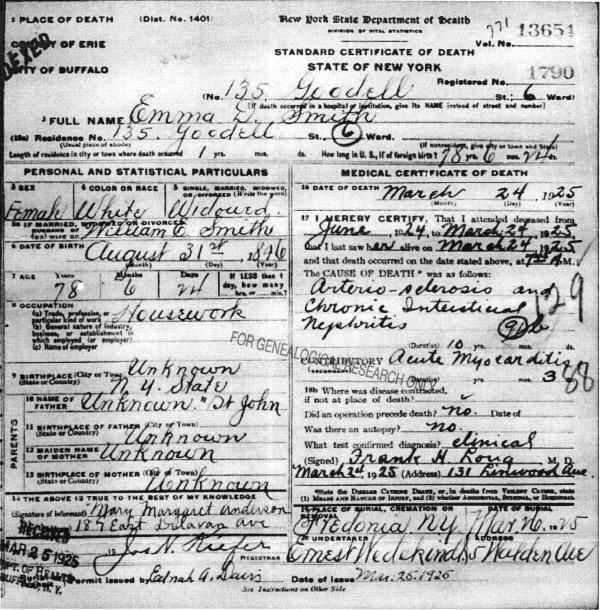 1 PLACE OF DEATH (Dist. No. 1401) New York State Department of Health 771 13651
DIVISION OF VITAL STATISTICS Vol. No.
COUNTY OF ERIE STANDARD CERTIFICATE OF DEATH
CITY OF BUFFALO STATE OF NEW YORK
Registered No. 1790
(No. 135 Goodell St.; 6 Ward)
(If death occurred in a hospital or institution, give its NAME instead of street and number)
2 FULL NAME Emma D. Smith
Residence No. 135 Goodell St. 6 Ward.
(Usual place of abode) (If nonresident, give city or town and State)
Length of residence in city or town where death occurred 1 yrs. mos. ds. How long in U. S., if of foreign birth? 78 yrs. 6 mos. 24 ds.
PERSONAL AND STATISTICAL PARTICULARS
3 SEX 4 COLOR OR RACE 5 SINGLE, MARRIED, WIDOWED, OR DIVORCED (Write the word)
Female White Widowed.
IF MARRIED, WIDOWED OR DIVORCED
William E. Smith
6 DATE OF BIRTH August 31st, 1846
(Month) (Day) (Year)
7 AGE Years Months Days IF LESS than 1 day, how many hrs. or min.
78 6 24
8 OCCUPATION
(a) Trade, profession, or particular kind of work Housework
(b) General nature of industry, business, or establishment in which employed (or employer)
(c) Name of employer
9 BIRTHPLACE (City or Town) Unknown
(State or Country) N. Y. State
PARENTS
10 NAME OF FATHER Unknown "St John
11 BIRTHPLACE OF FATHER (City or Town)
(State or Country) Unknown
12 MAIDEN NAME OF MOTHER Unknown
13 BIRTHPLACE OF MOTHER (City or Town)
(State or Country) Unknown
14 THE ABOVE IS TRUE TO THE BEST OF MY KNOWLEDGE
(Signature of Informant) Mary Margaret Anderson
187 East Delavan Ave
RECEIVED
MAR 25 1925
Jos N. Kiefer
REGISTRAR
Permit issued by Ednah A. Davis
MEDICAL CERTIFICATE OF DEATH
16 DATE OF DEATH March 24, 1925
(Month) (Day) (Year)
17 I HEREBY CERTIFY, That I attended deceased from
June, 1924, to March 24, 1925
that I last saw her alive on March 24, 1925
and that death occurred on the date stated above, at M.
The CAUSE OF DEATH * was as follows:
Arterio-sclerosis and
Chronic Interstitial
Nephritis
129
(Duration) 10 yrs. mos. ds.
CONTRIBUTORY Acute Myocarditis
(SECONDARY)
(Duration) yrs. mos. 3 ds.
88
18b Where was disease contracted, if not at place of death?
Did an operation precede death? no. Date of
Was there an autopsy? no.
What test confirmed diagnosis? clinical
(Signed) Frank H. Long M. D.
March 24, 1925 (Address) 131 Linwood Ave.
*State the DISEASE CAUSING DEATH, or, in deaths from VIOLENT CAUSES, state (1) MEANS AND NATURE OF INJURY, and (2) whether ACCIDENTAL, SUICIDAL, or HOMICIDAL.
19 PLACE OF BURIAL, CREMATION OR REMOVAL DATE OF BURIAL
Fredonia N.Y. Mar. 26, 1925
20 UNDERTAKER ADDRESS
Ernest Wedekindt Walden Ave
Date of Issue Mar. 25. 1925
See Instructions on Other Side
FOR GENEALOGICAL RESEARCH ONLY